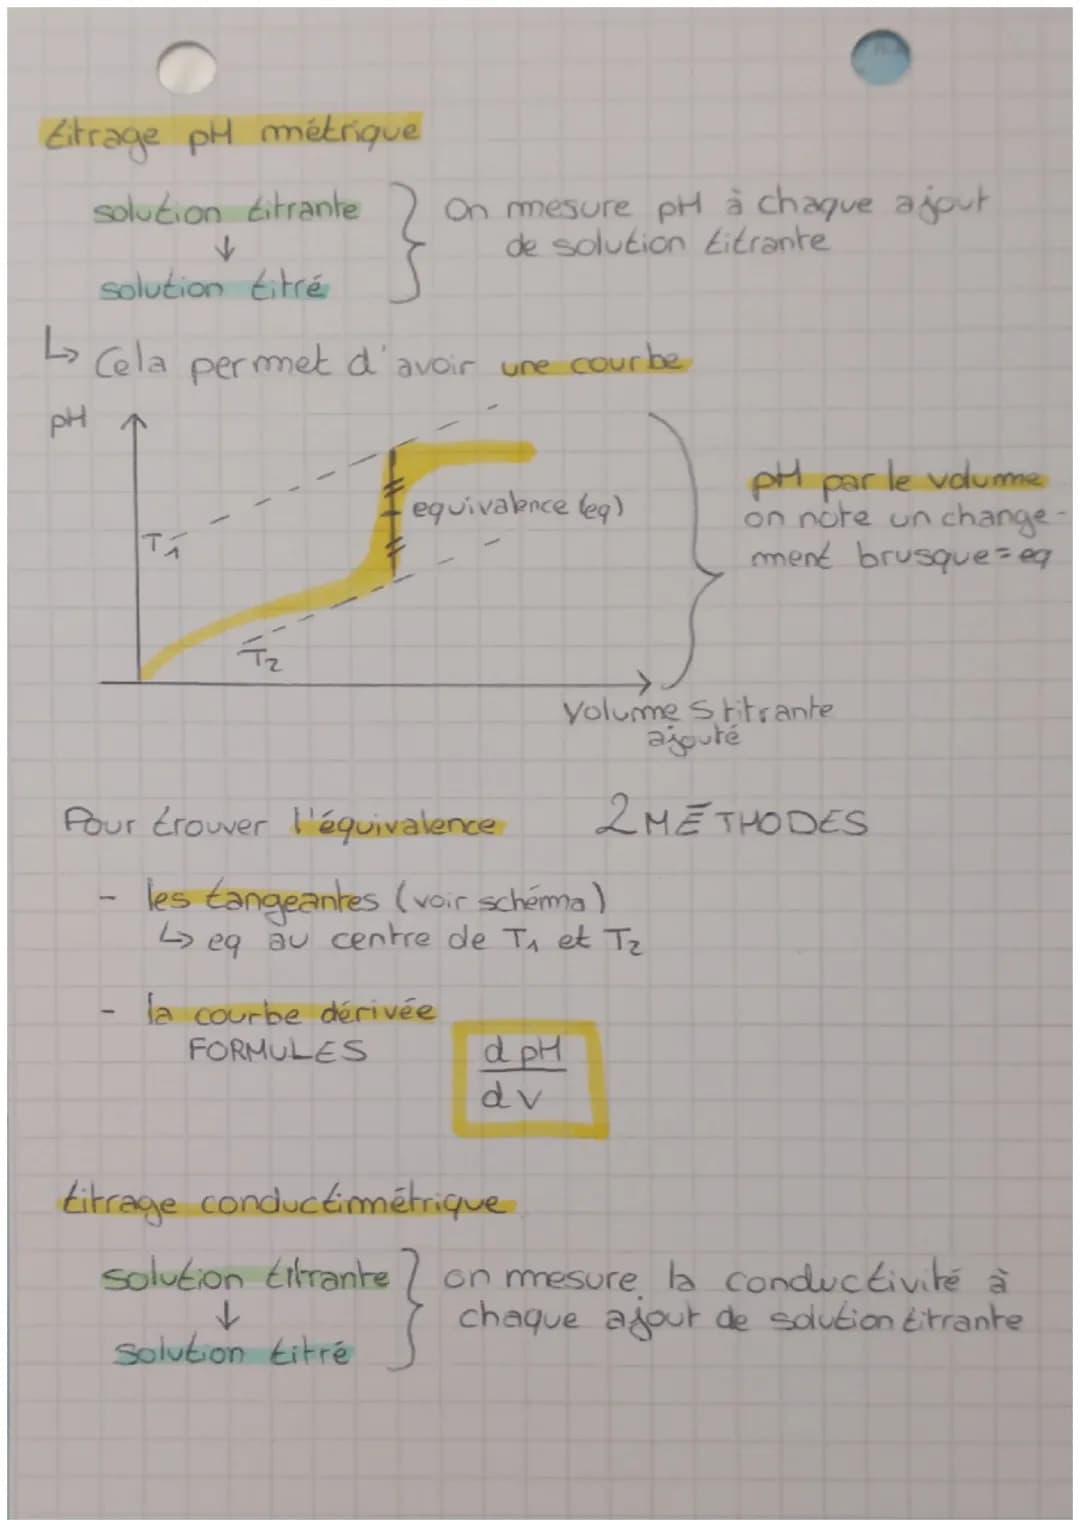 titrage pH métrique
solution titrante
On mesure pH à chaque ajout
↓
de solution titrante
solution titré
↳ Cela permet d'avoir une courbe
pH
T1
equivalence (eq)
T2
pH par le volume
on note un change-
ment brusque = eq
Volume S titrante
ajouté
Pour trouver l'équivalence 2 MÉTHODES
- les tangeantes (voir schéma)
↳ eq au centre de T1 et T2
- la courbe dérivée
FORMULES
d pH
d v
titrage conductimétrique
solution titrante
on mesure la conductivité à
↓
chaque ajout de solution titrante
solution titré